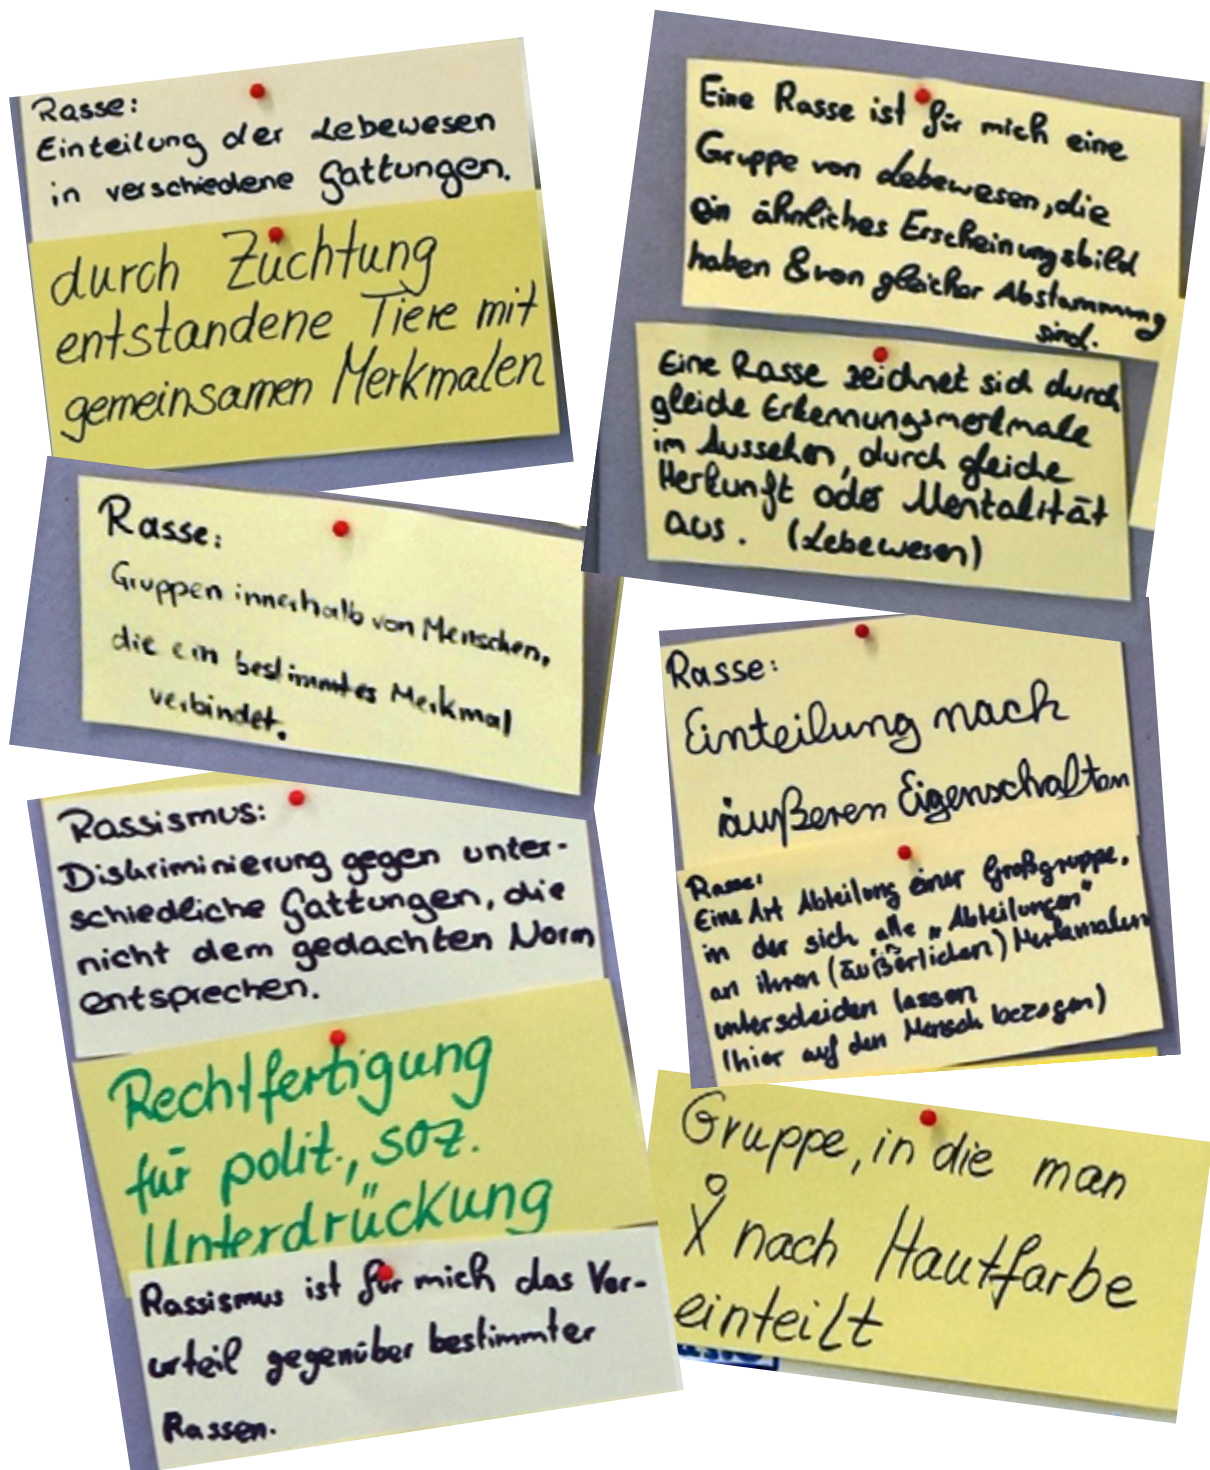 Rasse:
Einteilung der Lebewesen
in verschiedene Gattungen.
durch Züchtung
entstandene Tiere mit
gemeinsamen Merkmalen
Rasse:
Gruppen innerhalb von Menschen,
die ein bestimmtes Merkmal
verbindet.
Rassismus:
Diskriminierung gegen unter-
schiedliche Gattungen, die
nicht dem gedachten Norm
entsprechen.
Rechtfertigung
für polit., soz.
Unterdrückung
Rassismus ist für mich das Vor-
urteil gegenüber bestimmter
Rassen.
Eine Rasse ist für mich eine
Gruppe von Lebewesen, die
ein ähnliches Erscheinungsbild
haben & von gleicher Abstammung
sind.
Eine Rasse zeichnet sich durch
gleiche Erkennungsmerkmale
im Aussehen, durch gleiche
Herkunft oder Mentalität
aus. (Lebewesen)
Rasse:
Einteilung nach
äußeren Eigenschaften
Rasse:
Eine Art Abteilung einer Großgruppe,
in der sich alle „Abteilungen"
an ihren (äußerlichen) Merkmalen
unterscheiden lassen
(hier auf den Mensch bezogen)
Gruppe, in die man
nach Hautfarbe
einteilt